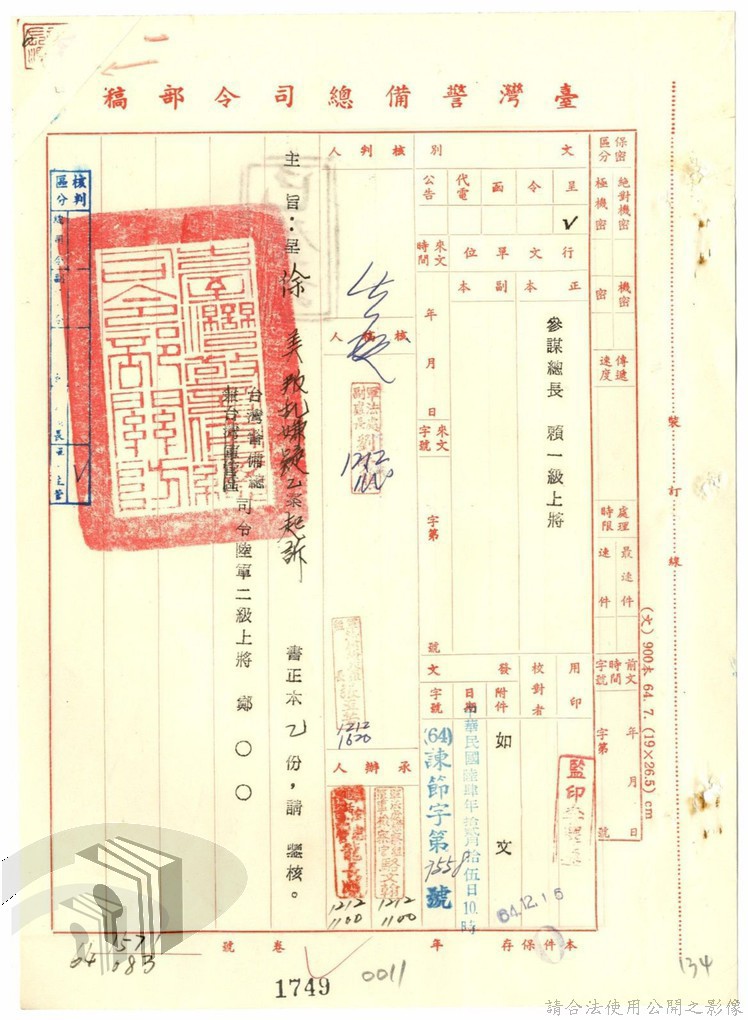 臺灣警備總司令部稿
保密區分
絕對機密
極機密
機密
密
傳遞速度
處理時限
最速件
速件
前文時間字號
年 月 日
字第 號
文別
呈 ✓
令
函
代電
公告
行文單位
正本
副本
參謀總長 賴一級上將
來文時間
年 月 日
來文字號
字第 號
用印
校對者
發文
附件
如文
日期
中華民國陸肆年拾貳月拾伍日10時
字號
(64)諫節字第7558號
監印
64.12.15
核判人
核稿人
軍法處副處長劉
1212
1100
1212
1620
承辦人
1212
1100
1212
1100
主旨:呈涂
叛亂嫌疑乙案起訴
書正本乙份,請 鑒核。
台灣警備總
兼台灣軍管區
司令陸軍二級上將 鄭○○
核判區分
主管
✓
本件保存 年
卷 號
裝訂線
(文) 900本 64. 7. (19×26.5) cm
1571
04 083
1749
0011
134
請合法使用公開之影像